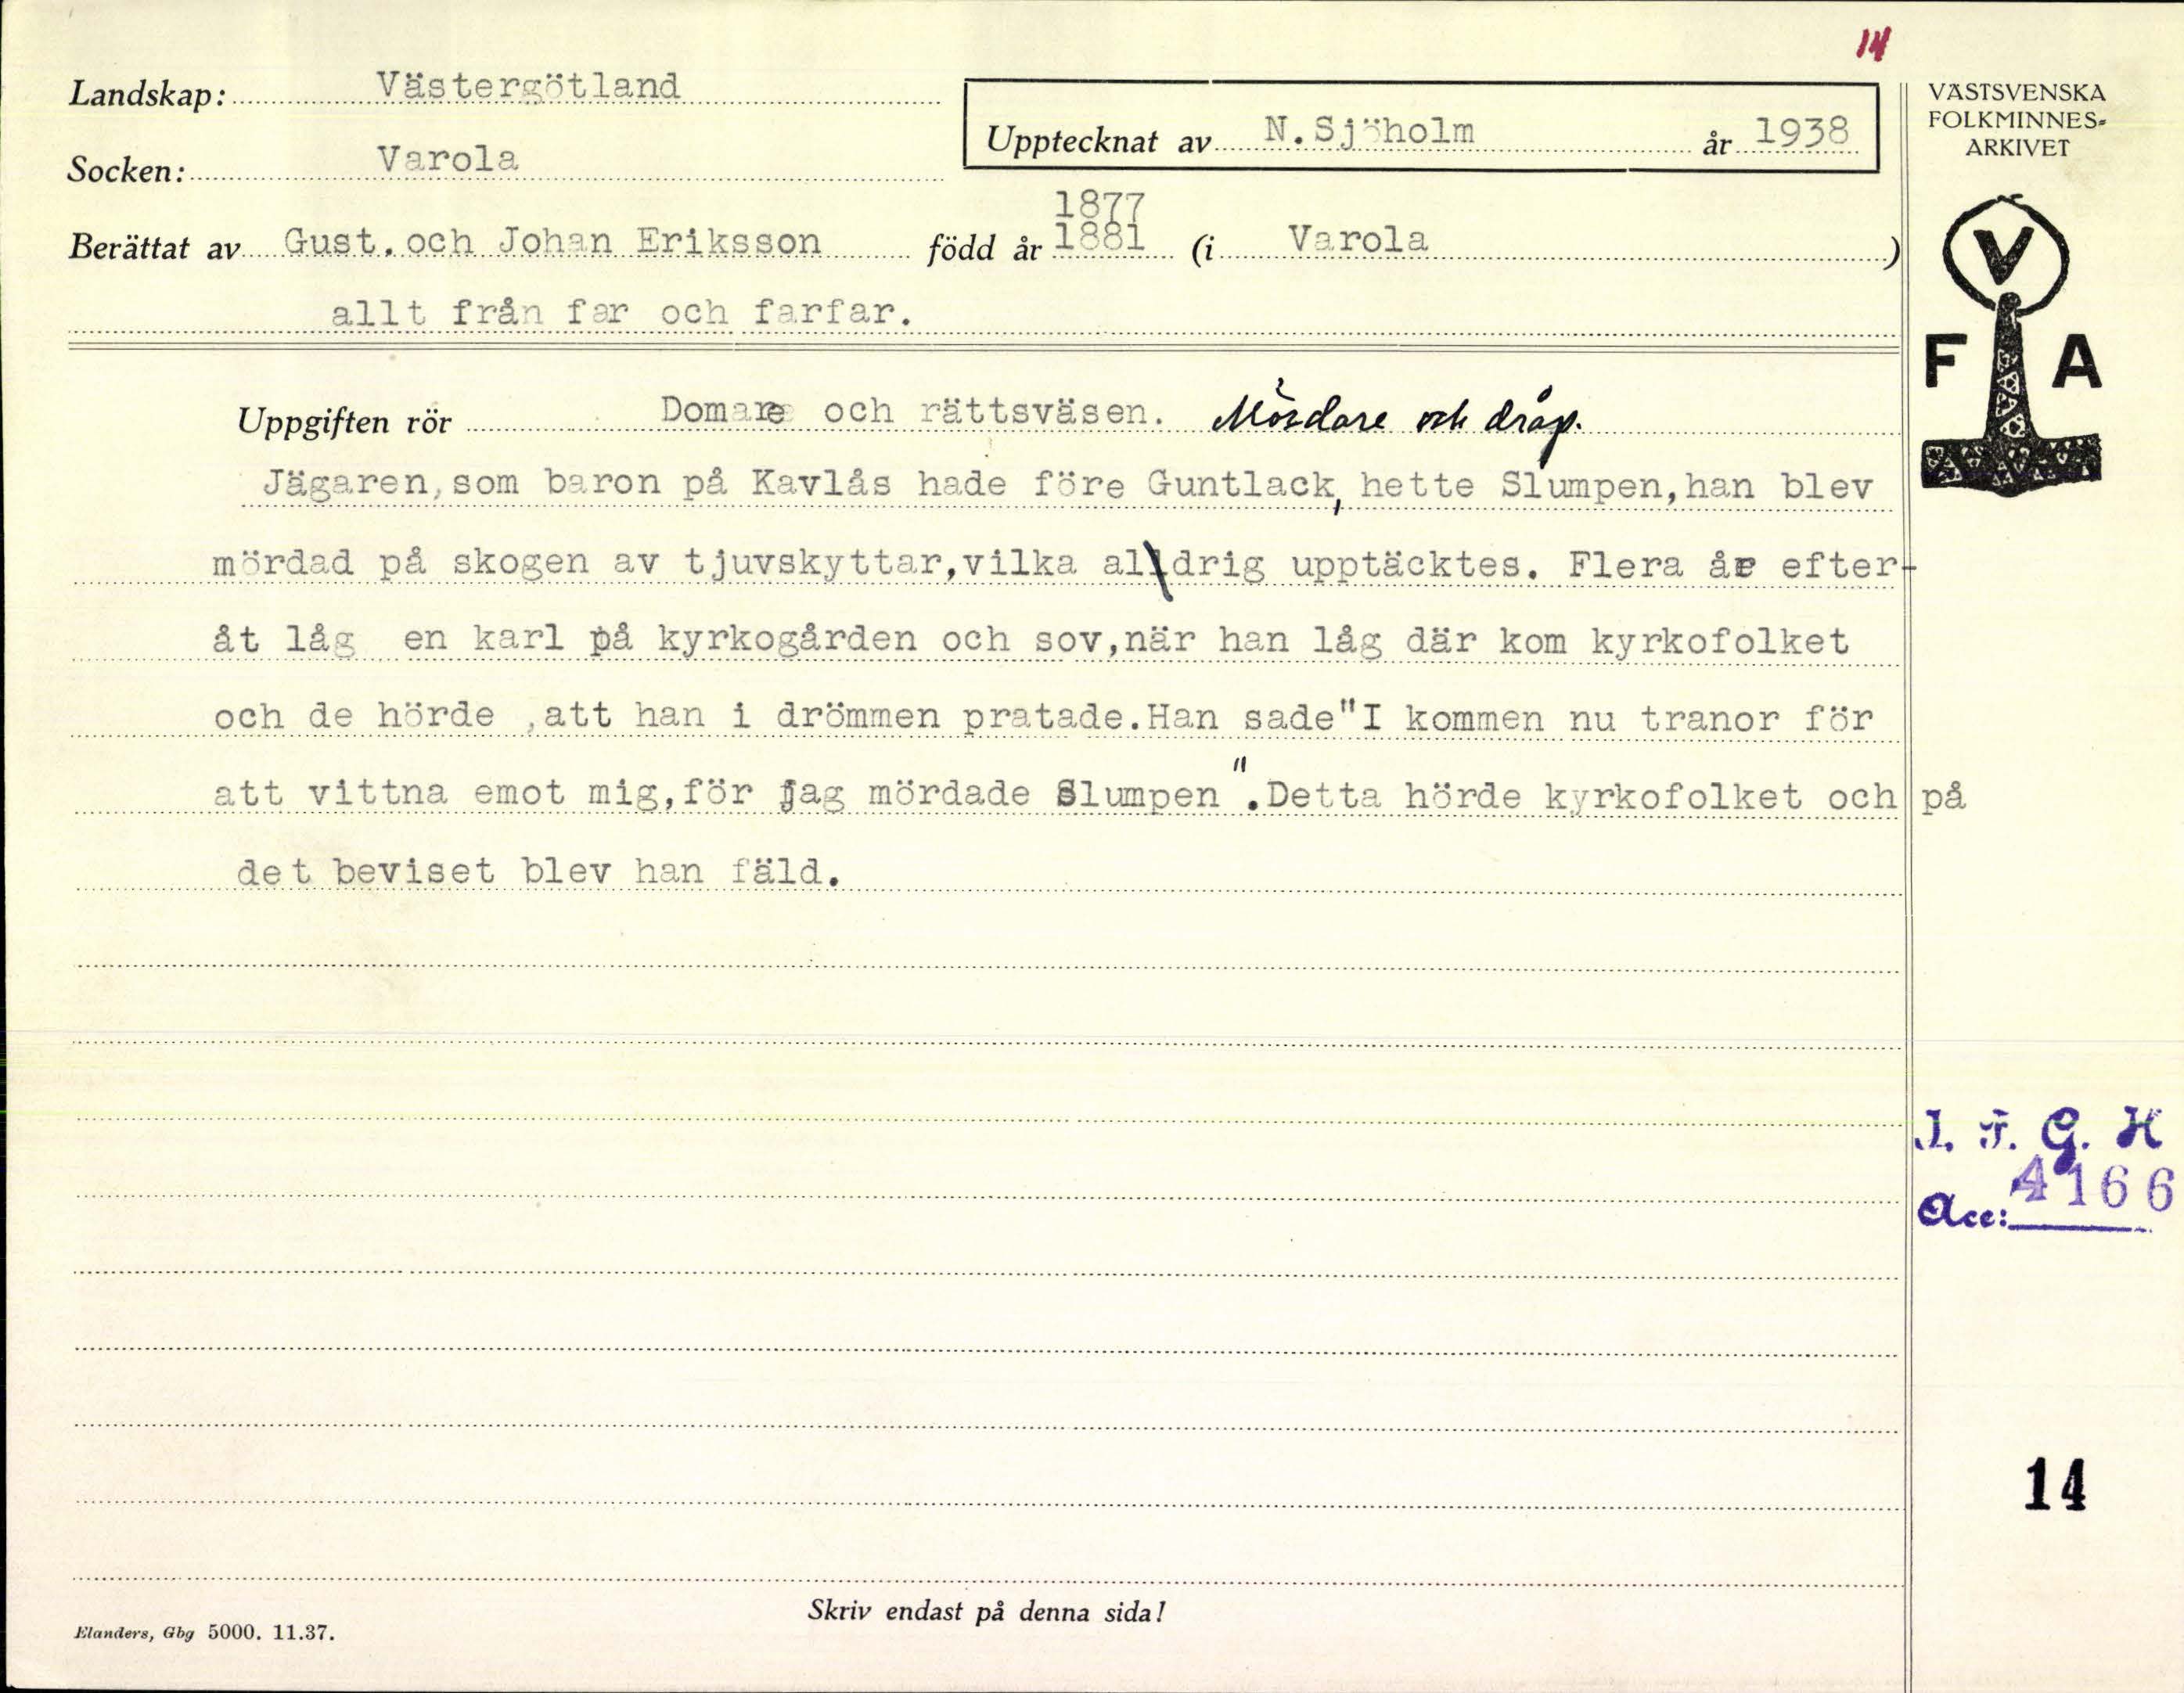 14
Landskap: Västergötland
Upptecknat av N.Sjöholm år 1938
Socken: Varola
1877
Berättat av Gust. och Johan Eriksson född år 1881 (i Varola )
allt från far och farfar.
Uppgiften rör Domare och rättsväsen. Mördare och dråp.
Jägaren,som baron på Kavlås hade före Guntlack, hette Slumpen,han blev
mördad på skogen av tjuvskyttar,vilka aldrig upptäcktes. Flera år efter-
åt låg en karl på kyrkogården och sov,när han låg där kom kyrkofolket
och de hörde ,att han i drömmen pratade.Han sade"I kommen nu tranor för
att vittna emot mig,för jag mördade Slumpen".Detta hörde kyrkofolket och på
det beviset blev han fäld.
Skriv endast på denna sida!
Elanders, Gbg 5000. 11.37.
VÄSTSVENSKA
FOLKMINNES-
ARKIVET
V
F A
I. F. G. H
Acc: 4166
14